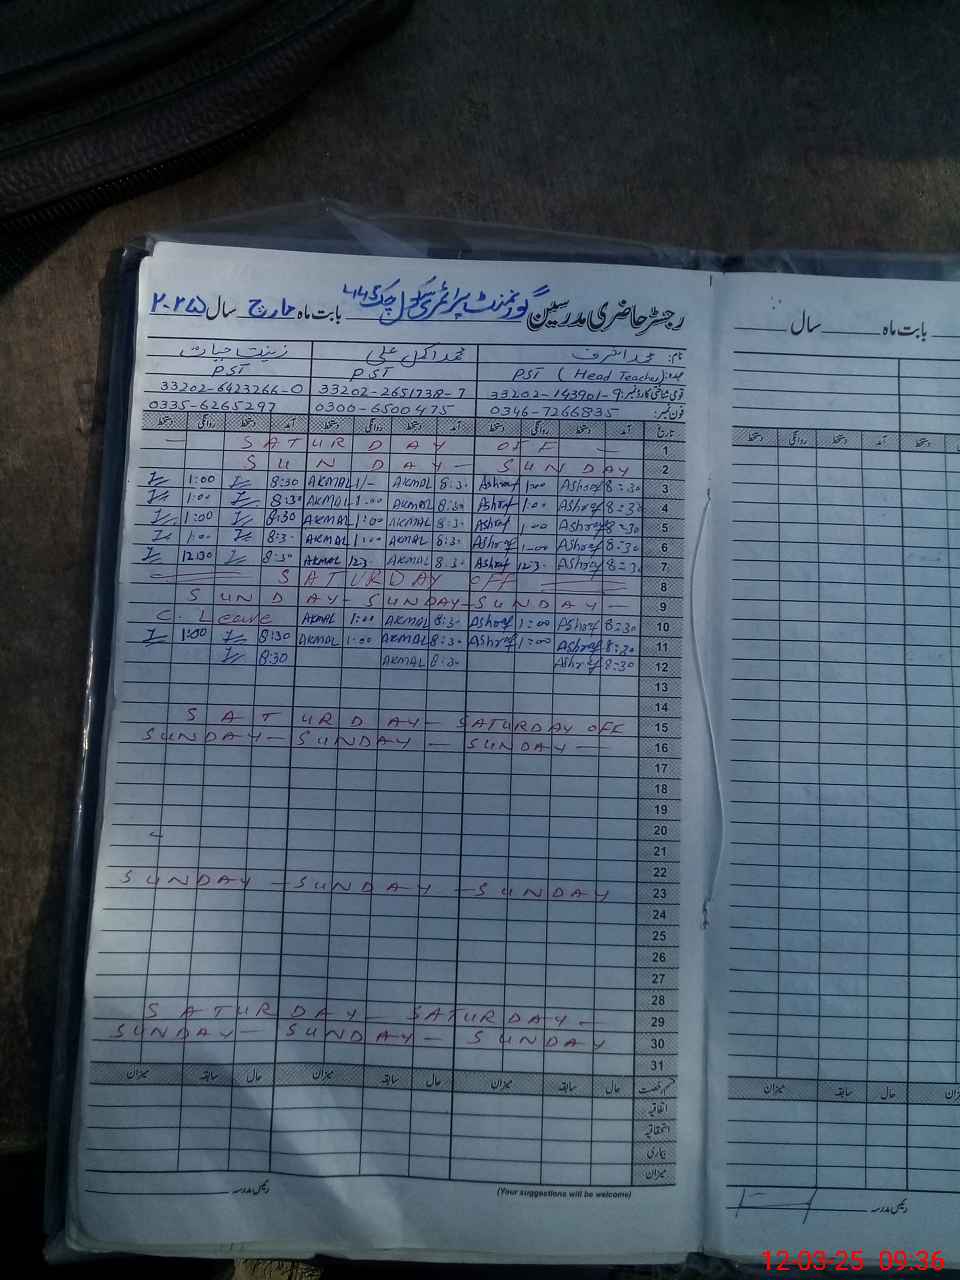 رجسٹر حاضری مدرسین گورنمنٹ پرائمری سکول چک 445 بابت ماہ مارچ سال ۲۰۲۵
نام: محمد اشرف محمد اکمل علی زینت حیات
عہدہ: PST (Head Teacher) PST PST
قومی شناختی کارڈ نمبر: 33202-143901-9 33202-2651738-7 33202-6423266-0
فون نمبر: 0346-7266835 0300-6500475 0335-6265297
تاریخ آمد دستخط روانگی دستخط آمد دستخط روانگی دستخط آمد دستخط روانگی دستخط
— SATURDAY OFF — 1
SUNDAY — SUNDAY 2
1:00 8:30 AKMAL 1/- AKMAL 8:30 Ashraf 1:00 Ashraf 8=30 3
1:00 8:30 AKMAL 1:00 AKMAL 8:30 Ashraf 1:00 Ashraf 8=30 4
1:00 8:30 AKMAL 1:00 AKMAL 8:30 Ashraf 1:00 Ashraf 8=30 5
1:00 8:30 AKMAL 1:00 AKMAL 8:30 Ashraf 1:00 Ashraf 8=30 6
12:30 8:30 AKMAL 12:30 AKMAL 8:30 Ashraf 12:30 Ashraf 8=30 7
SATURDAY OFF 8
SUNDAY - SUNDAY - SUNDAY — 9
C. Leave AKMAL 1:00 AKMAL 8:30 Ashraf 1:00 Ashraf 8=30 10
1:00 8:30 AKMAL 1:00 AKMAL 8:30 Ashraf 1:00 Ashraf 8=30 11
8:30 AKMAL 8:30 Ashraf 8=30 12
13
14
SATURDAY — SATURDAY OFF 15
SUNDAY — SUNDAY — SUNDAY — 16
17
18
19
20
21
22
SUNDAY — SUNDAY — SUNDAY 23
24
25
26
27
28
SATURDAY — SATURDAY — 29
SUNDAY — SUNDAY — SUNDAY 30
31
قسم رخصت حال سابقہ میزان حال سابقہ میزان حال سابقہ میزان
اتفاقیہ
استحقاقیہ
بیماری
میزان
(Your suggestions will be welcome)
رئیس مدرسہ
بابت ماہ سال
آمد دستخط روانگی دستخط
حال سابقہ میزان
رئیس مدرسہ
12-03-25 09:36